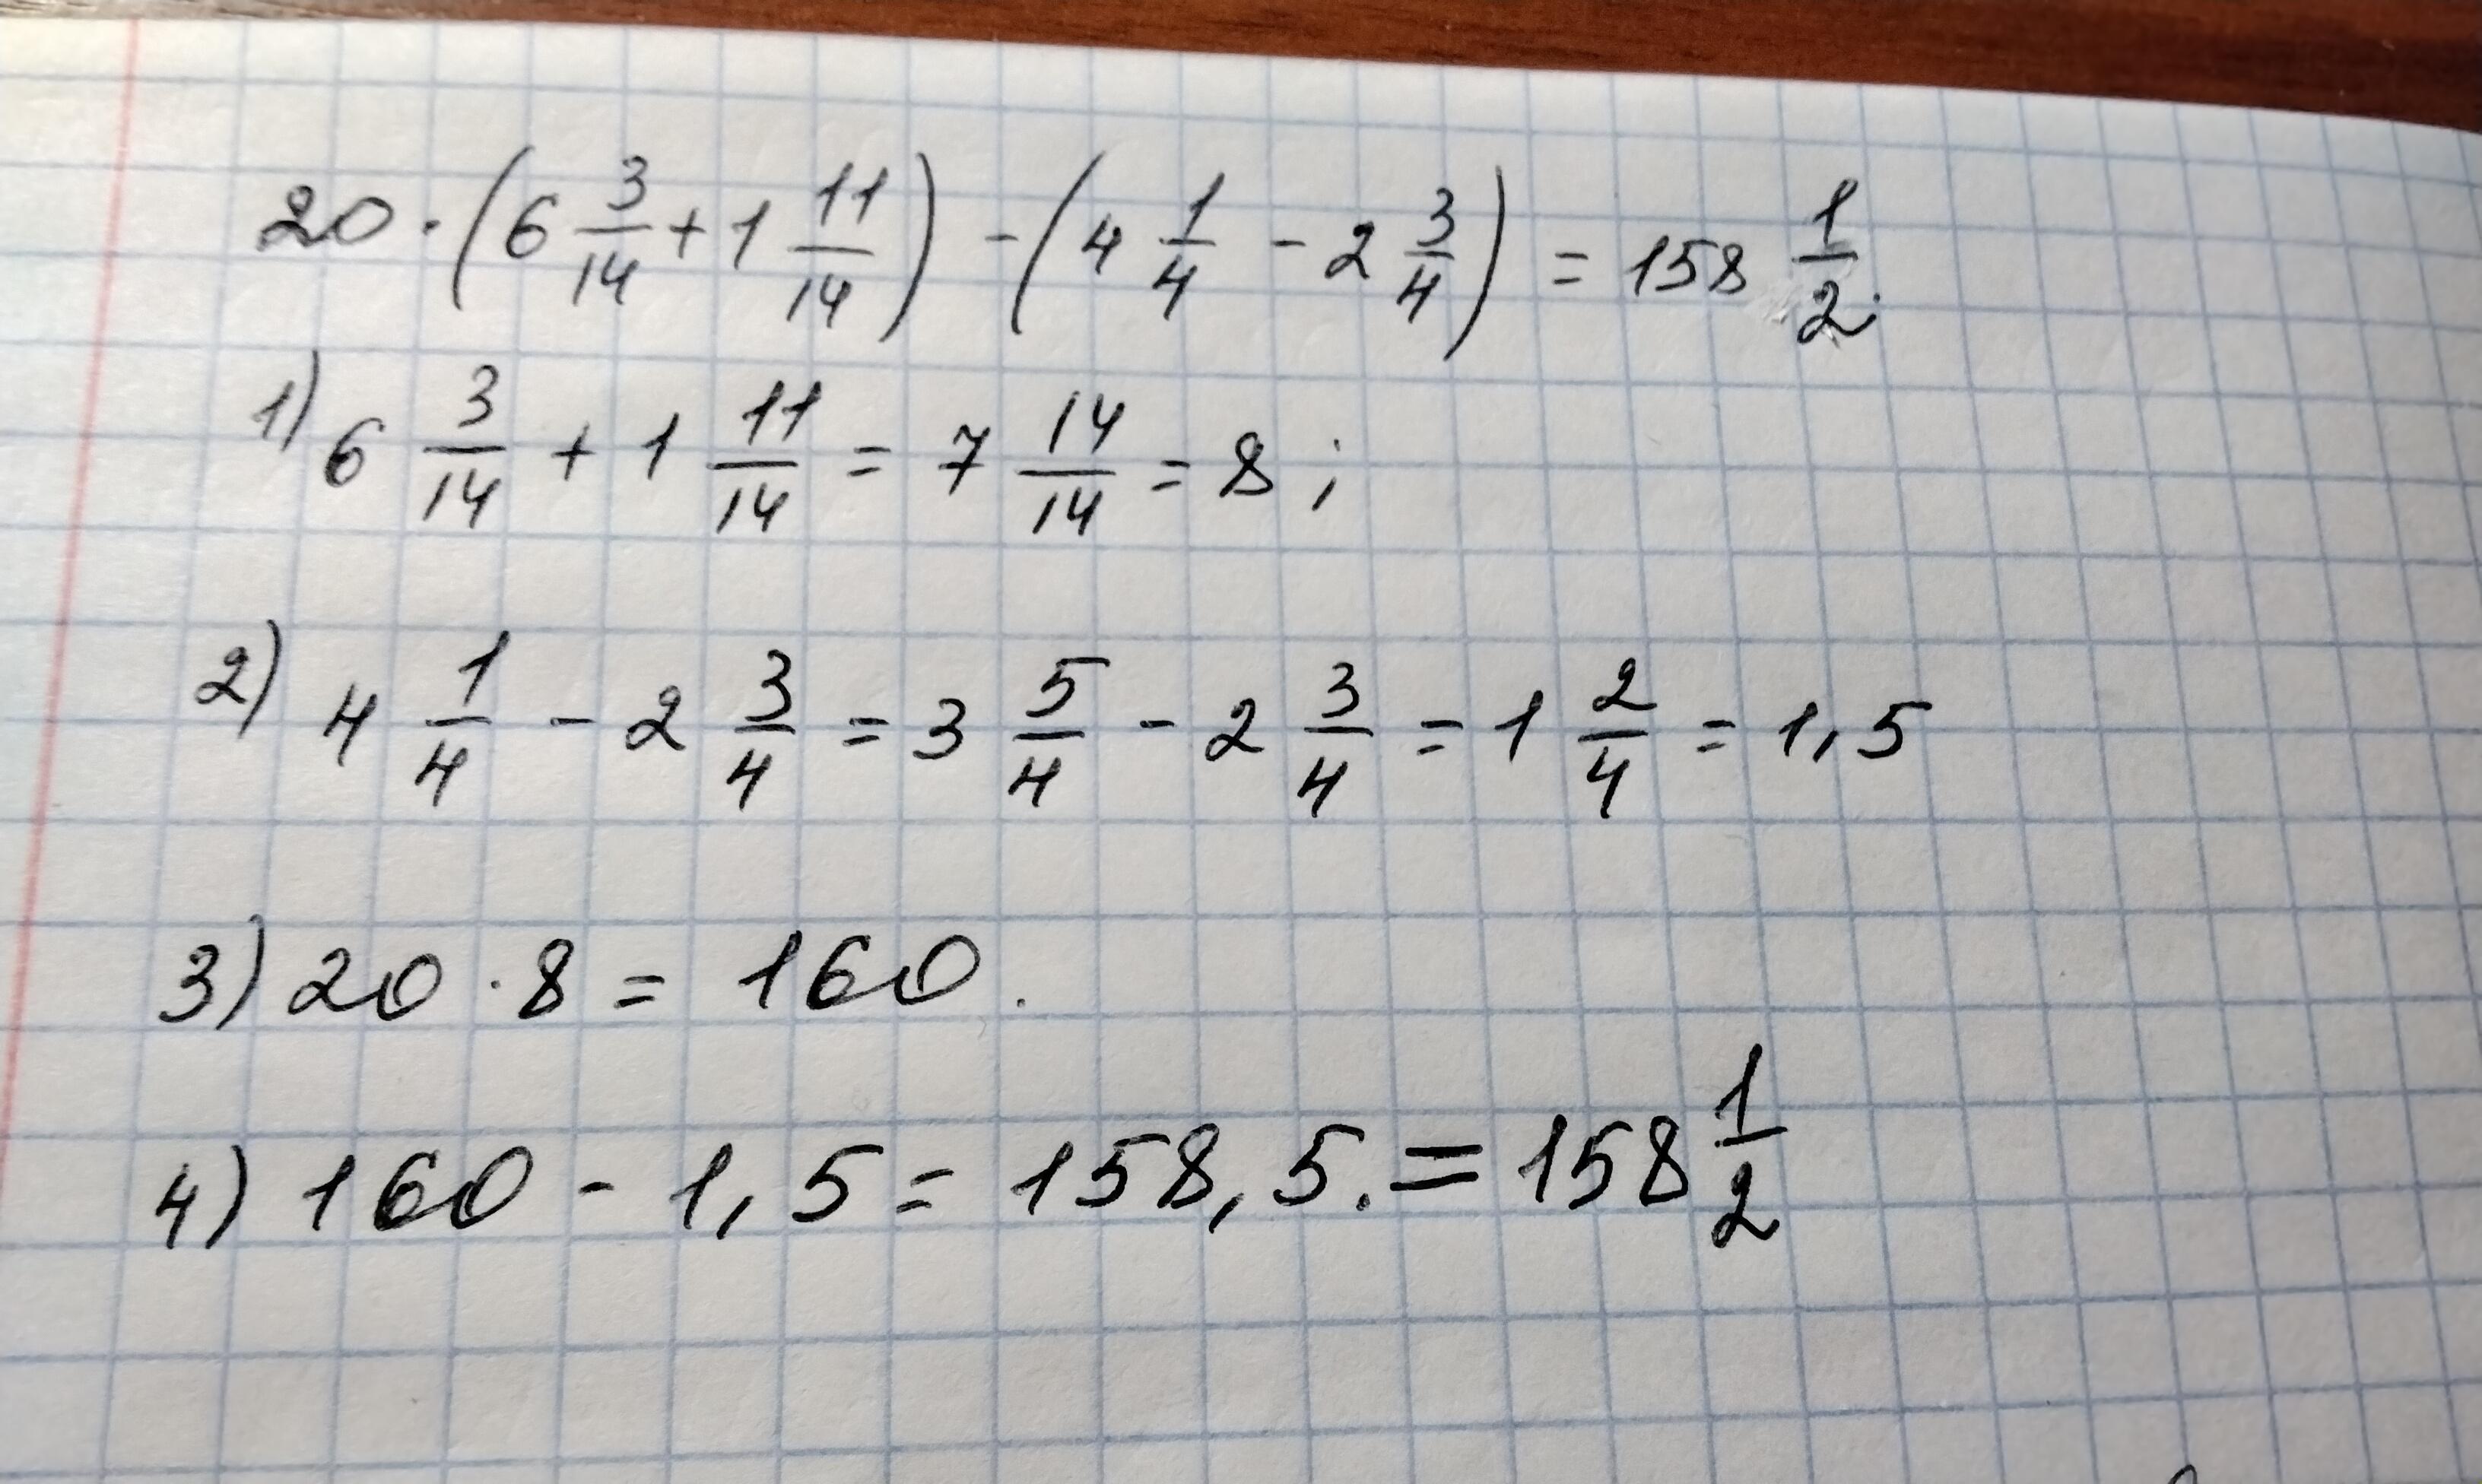 20 · (6 3/14 + 1 11/14) - (4 1/4 - 2 3/4) = 158 1/2.
1) 6 3/14 + 1 11/14 = 7 14/14 = 8 ;
2) 4 1/4 - 2 3/4 = 3 5/4 - 2 3/4 = 1 2/4 = 1,5
3) 20 · 8 = 160.
4) 160 - 1,5 = 158,5. = 158 1/2